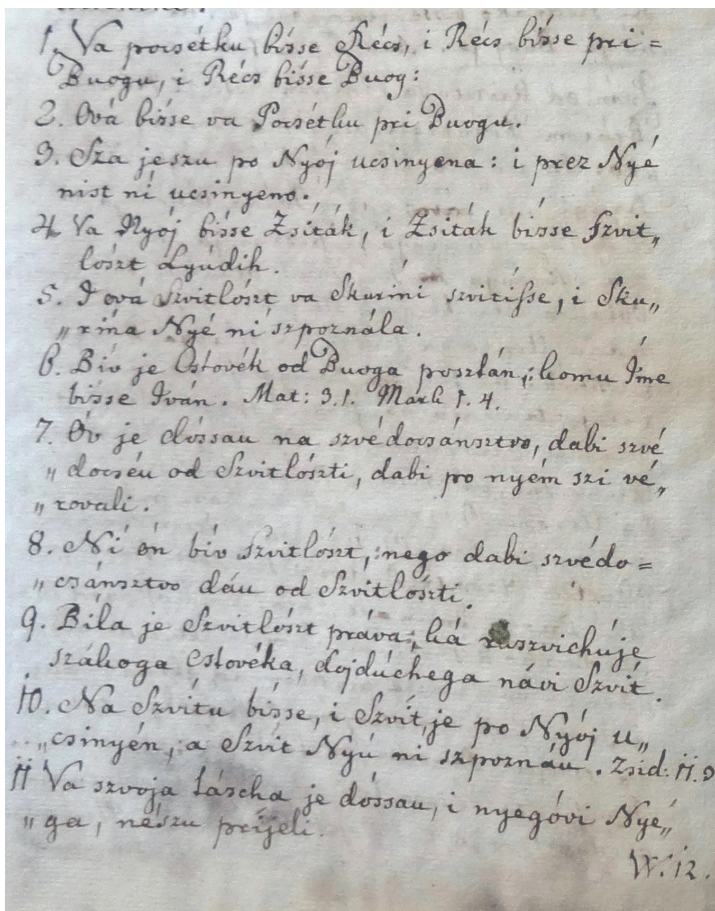 1. Va pocsétku bísse Récs, i Récs bísse pri=
Buogu, i Récs bísse Buog:
2. Ová bísse va Pocsétku pri Buogu.
3. Sza jeszu po Nyój ucsinyena: i prez Nyé
nist ní ucsinyeno.
4. Va Nyój bísse Zsiták, i Zsiták bísse Szvit„
lószt Lyúdih.
5. I ová Szvitlószt va Skuríni szvitísse, i Sku„
„rína Nyé ní szpoznála.
6. Biv je Cslovék od Buoga poszlán,: komu Íme
bísse Iván. Mat: 3.1. Mark 1.4.
7. Óv je dóssau na szvédocsánsztvo, dabi szvé
„docséu od Szvitlószti, dabi po nyém szi vé„
„rovali.
8. Ní ón bív Szvitlószt,: nego dabi szvédo=
„csánsztvo dáu od Szvitlószti.
9. Bíla je Szvitlószt práva,: ká raszvichúje
szákoga Cslovéka, dojdúchega návi Szvít.
10. Na Szvítu bísse, i Szvít je po Nyój u„
„csinyén, a Szvít Nyú ní szpoznáu. Zsid: 11.
11 Va szvoja lászcha je dóssau, i nyegóvi Nyé„
„ga, nészu prijeli.
W. 12.